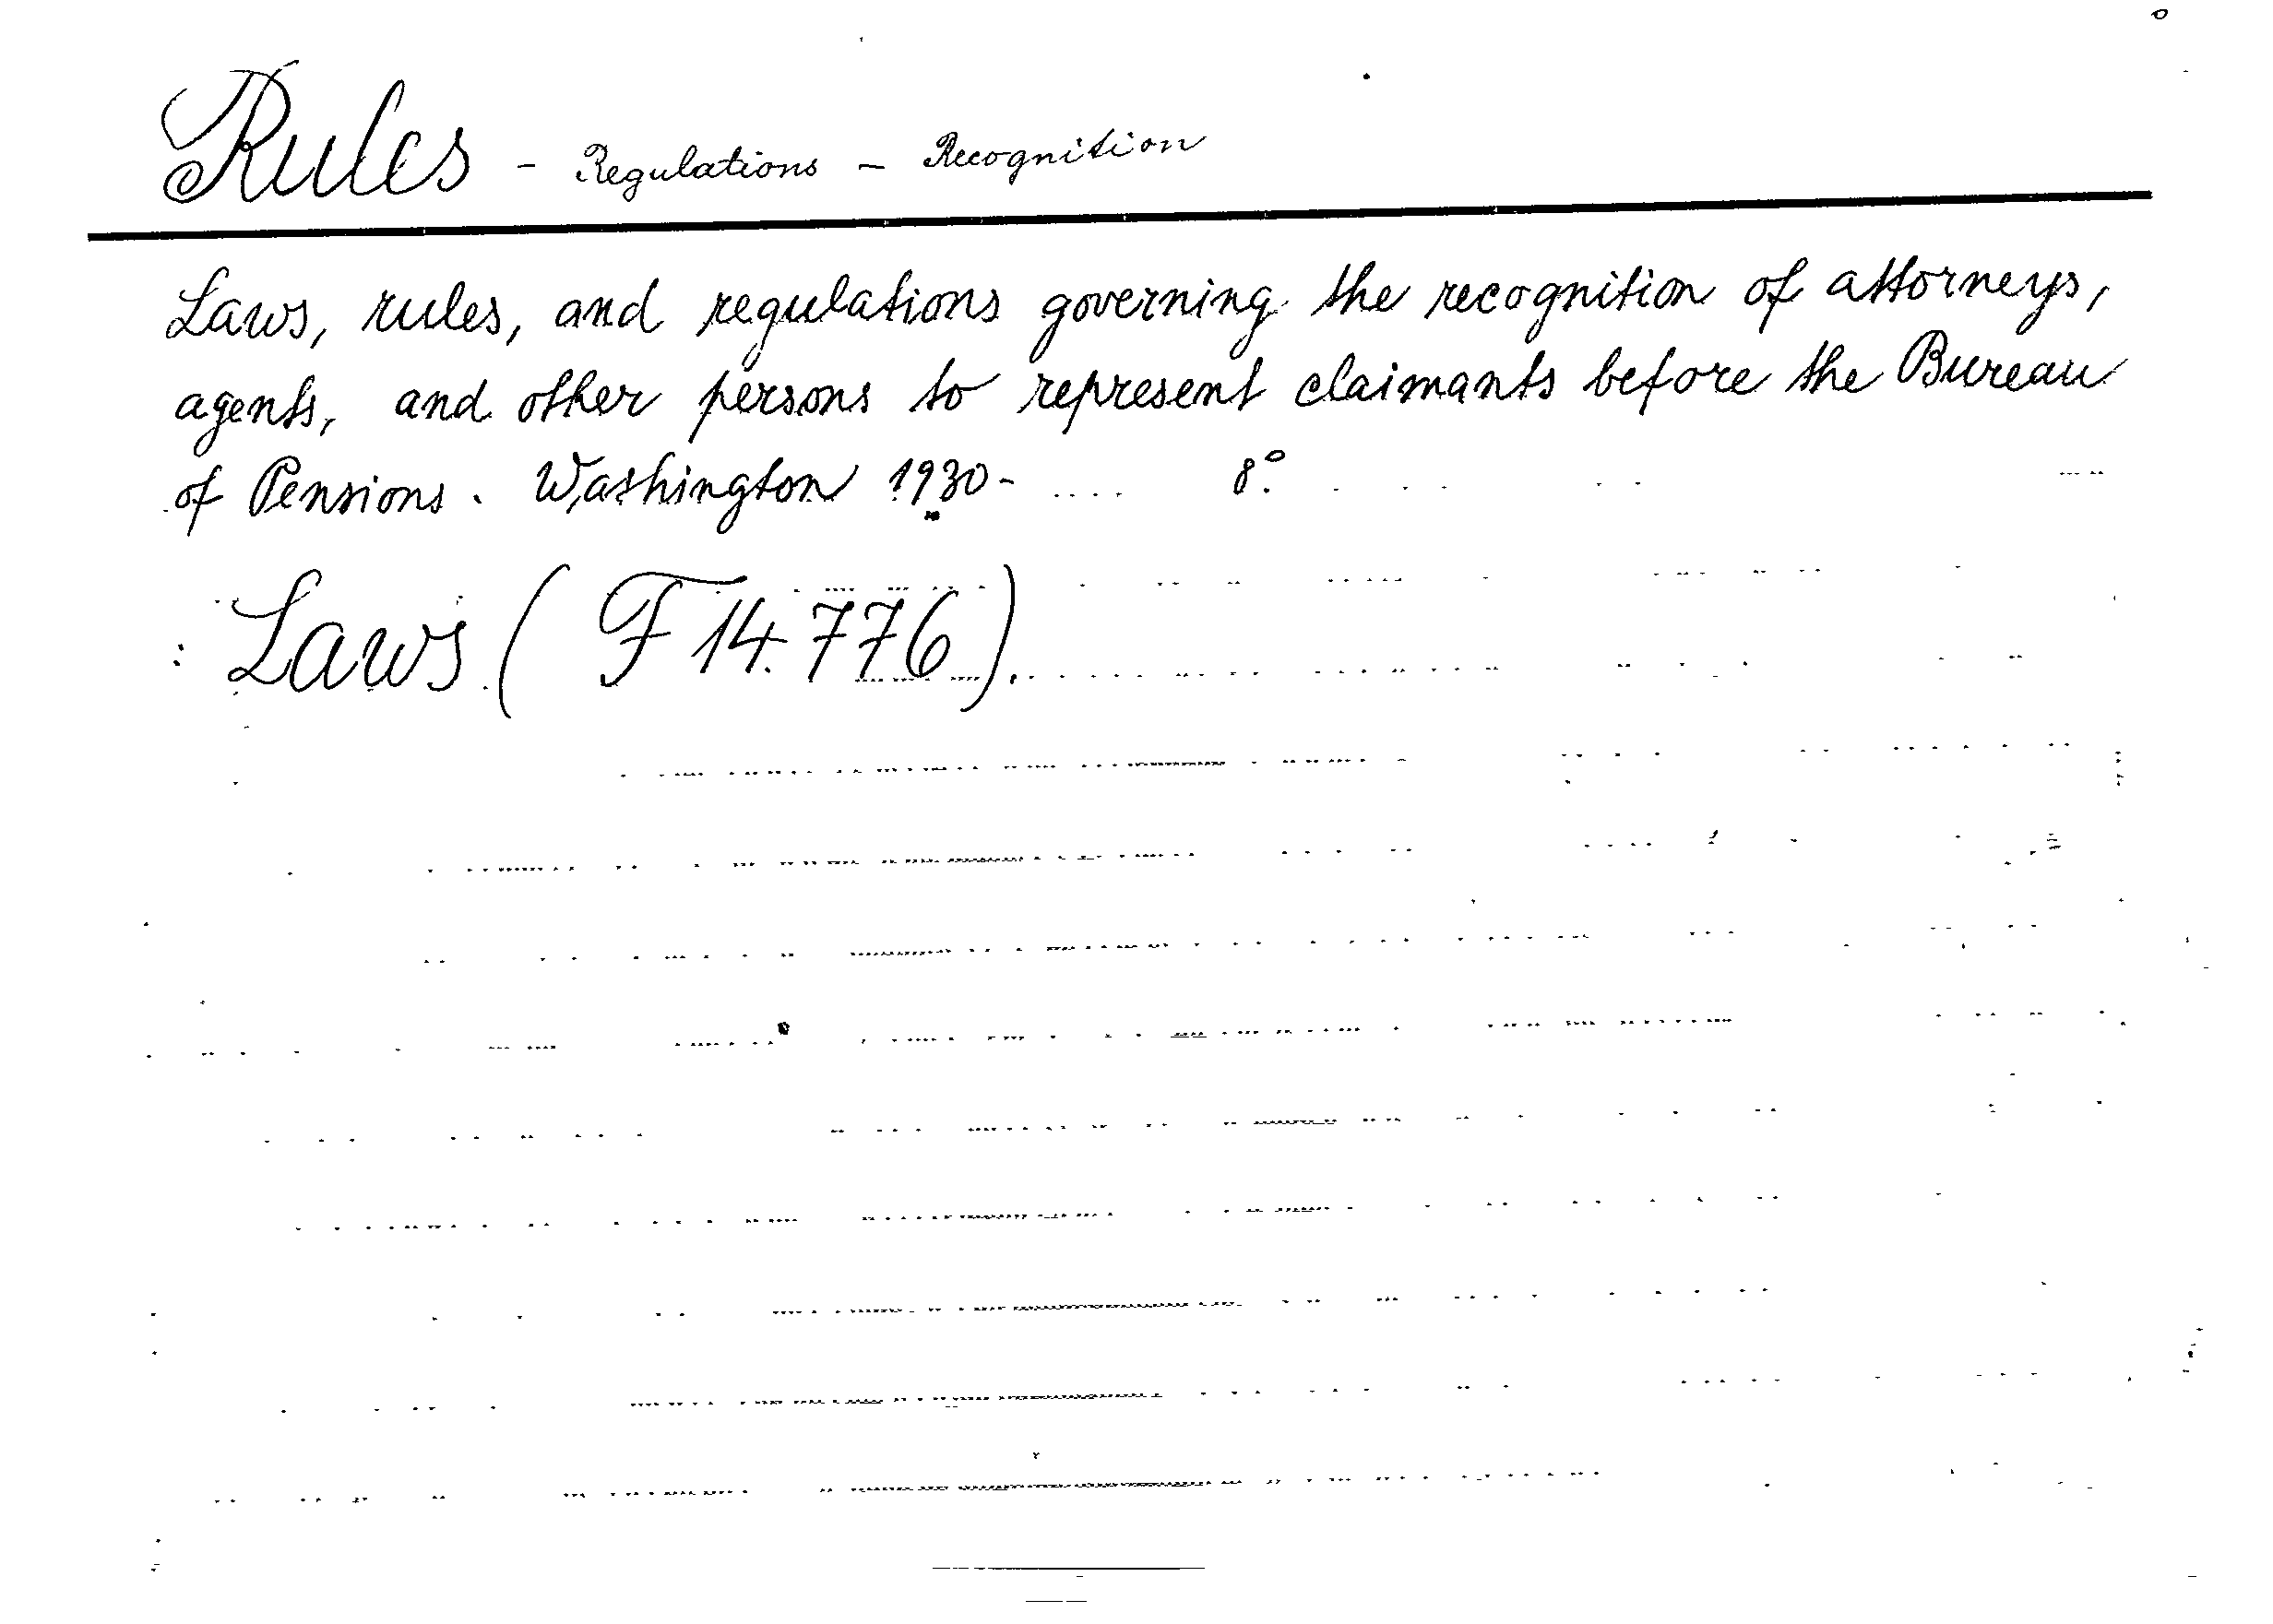 Rules - Regulations - Recognition
Laws, rules, and regulations governing the recognition of attorneys,
agents, and other persons to represent claimants before the Bureau
of Pensions. Washington 1930- 8°.
: Laws (F 14.776).